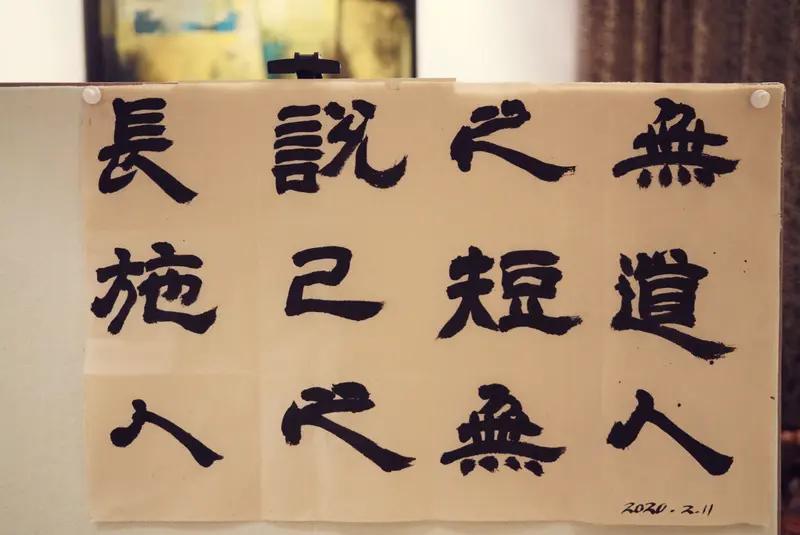 無道人
之短無
說己之
長施人
2020.2.11